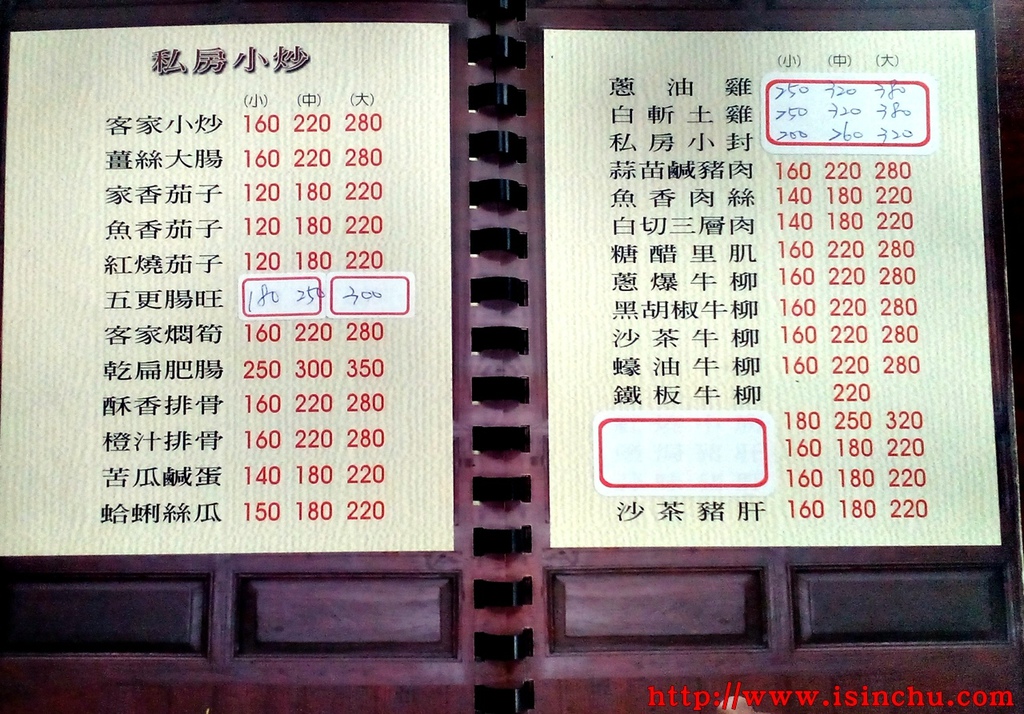 私房小炒
(小) (中) (大)
客家小炒 160 220 280
薑絲大腸 160 220 280
家香茄子 120 180 220
魚香茄子 120 180 220
紅燒茄子 120 180 220
五更腸旺 180 250 300
客家燜筍 160 220 280
乾扁肥腸 250 300 350
酥香排骨 160 220 280
橙汁排骨 160 220 280
苦瓜鹹蛋 140 180 220
蛤蜊絲瓜 150 180 220
(小) (中) (大)
蔥油雞 250 320 380
白斬土雞 250 320 380
私房小封 200 260 320
蒜苗鹹豬肉 160 220 280
魚香肉絲 140 180 220
白切三層肉 140 180 220
糖醋里肌 160 220 280
蔥爆牛柳 160 220 280
黑胡椒牛柳 160 220 280
沙茶牛柳 160 220 280
蠔油牛柳 160 220 280
鐵板牛柳 220
180 250 320
160 180 220
160 180 220
沙茶豬肝 160 180 220
http://www.isinchu.com